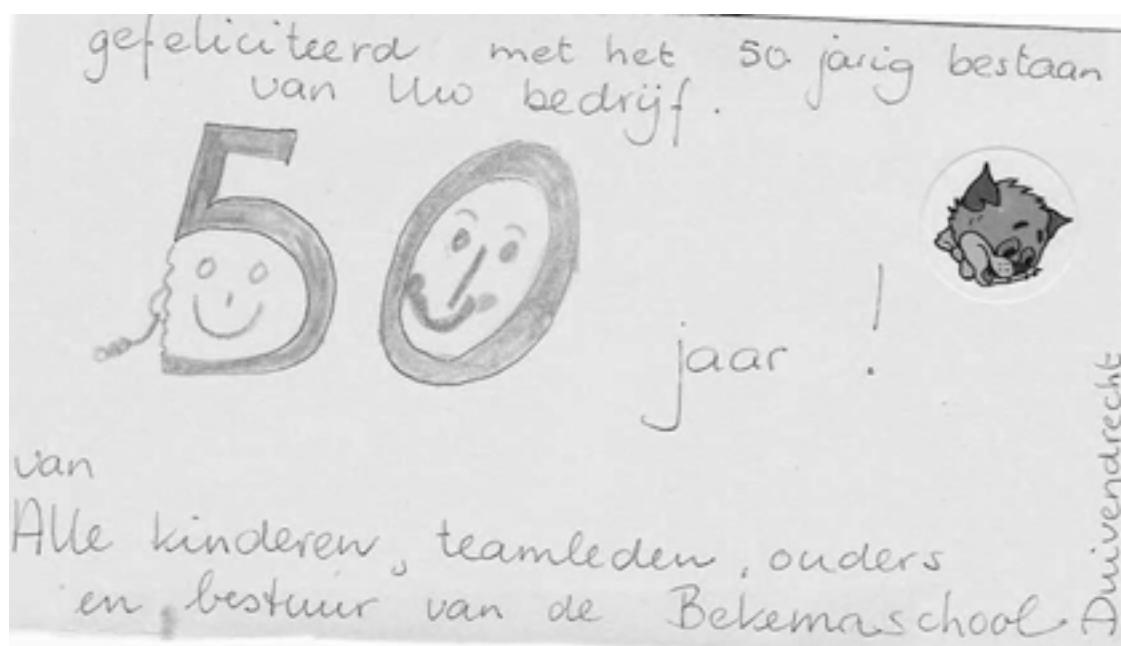 gefeliciteerd met het 50 jarig bestaan
van Uw bedrijf.
50 jaar !
van
Alle kinderen, teamleden, ouders
en bestuur van de Bekemaschool
Duivendrecht